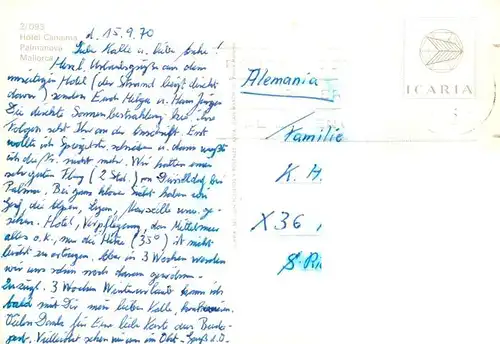 3/093
Hotel Canaima
Palmanova
Mallorca
d. 15.9.70
Liebe Kalle u. liebe
Herzl. Urlaubsgrüße aus dem
Hotel (der Strand liegt direkt
davor) senden Euch Helga u. Hans Jürgen
Die direkte Sonnenbestrahlung
Folgen seht Ihr an der Anschrift. Erst
wollte ich schreiben u. dann wußte
ich die nicht mehr. Wir hatten einen
sehr guten Flug (2 Std.) von Düsseldorf bis
Palma. Bei ganz klarer Sicht haben wir
die Alpen, Lyon, Marseille usw. ge-
sehen. Hotel, Verpflegung, das Mittelmeer
alles o.k., nur die Hitze (35°) ist nicht
leicht zu ertragen. Aber in 3 Wochen werden
wir uns schon noch daran gewöhnen.
3 Wochen Winterurlaub kann ich
bald mit Dir mein lieber Kalle,
Vielen Dank für Eure liebe Karte aus
Vielleicht sehen wir uns im Okt.
Alemania
Familie
K. H.
X36
S-Ri
ICARIA